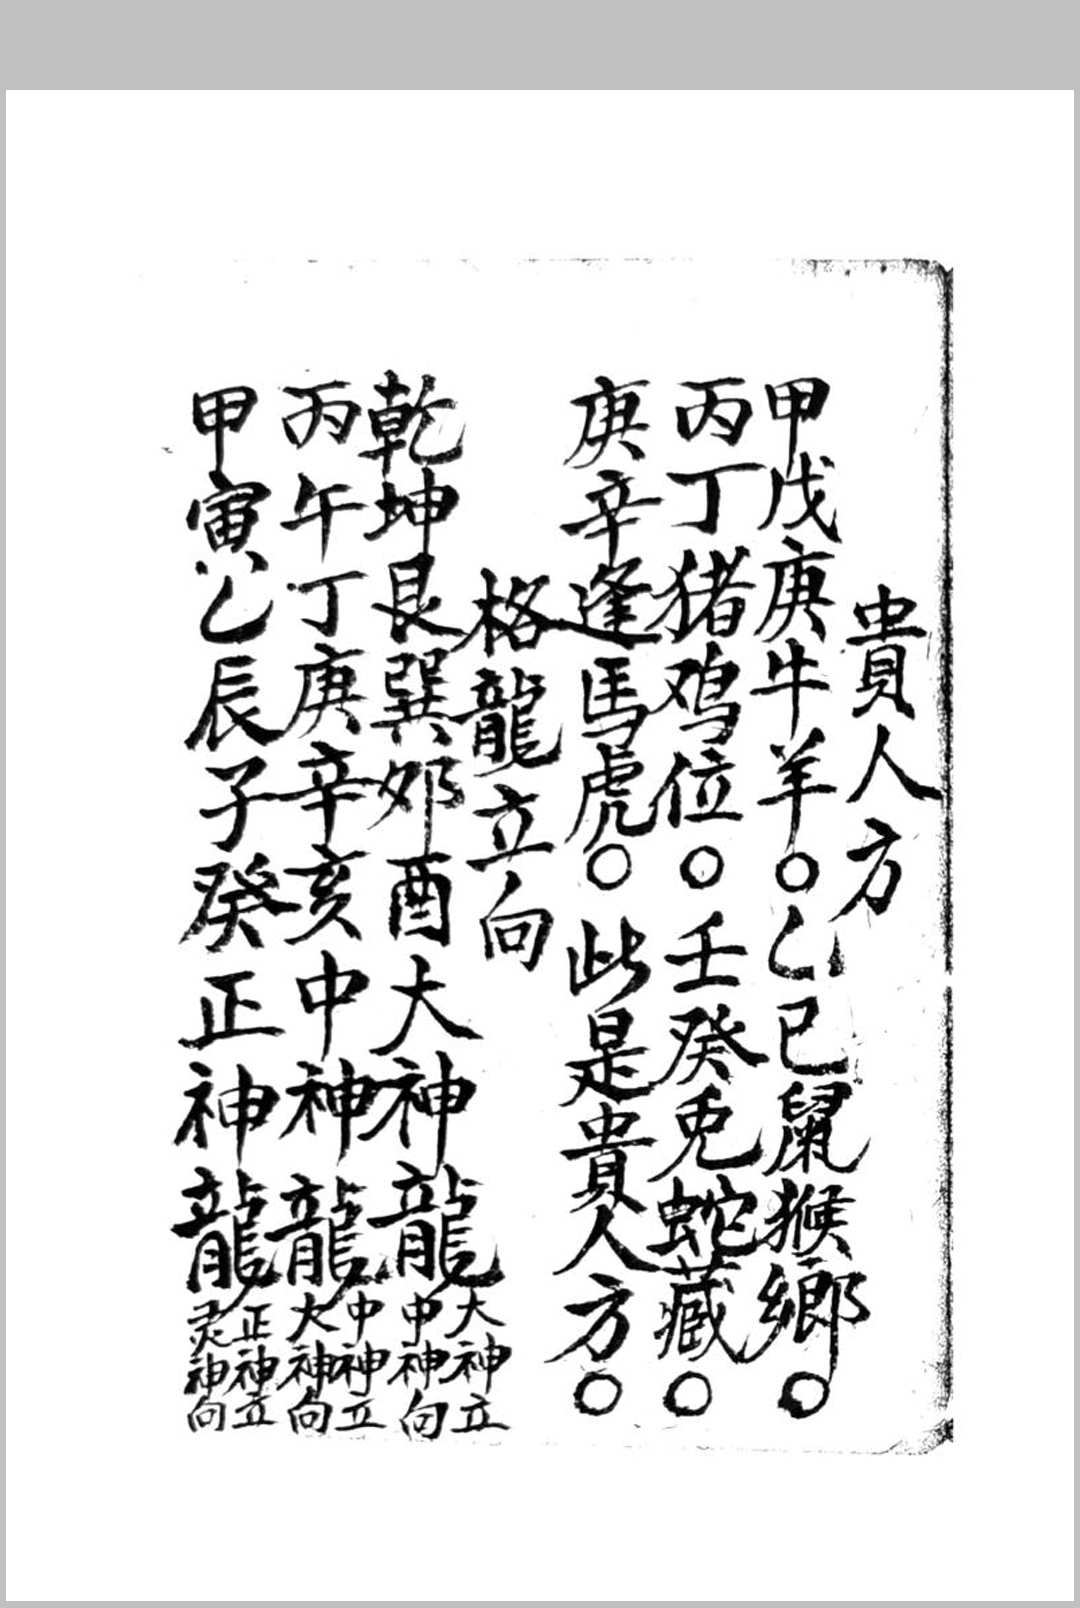 貴人方
甲戊庚牛羊○乙已鼠猴鄉○
丙丁猪鸡位○壬癸兎蛇藏○
庚辛逢馬虎○此是貴人方○
格龍立向
乾坤艮巽夘酉大神龍大神立中神向
丙午丁庚辛亥中神龍中神立大神向
甲寅乙辰子癸正神龍正神立灵神向